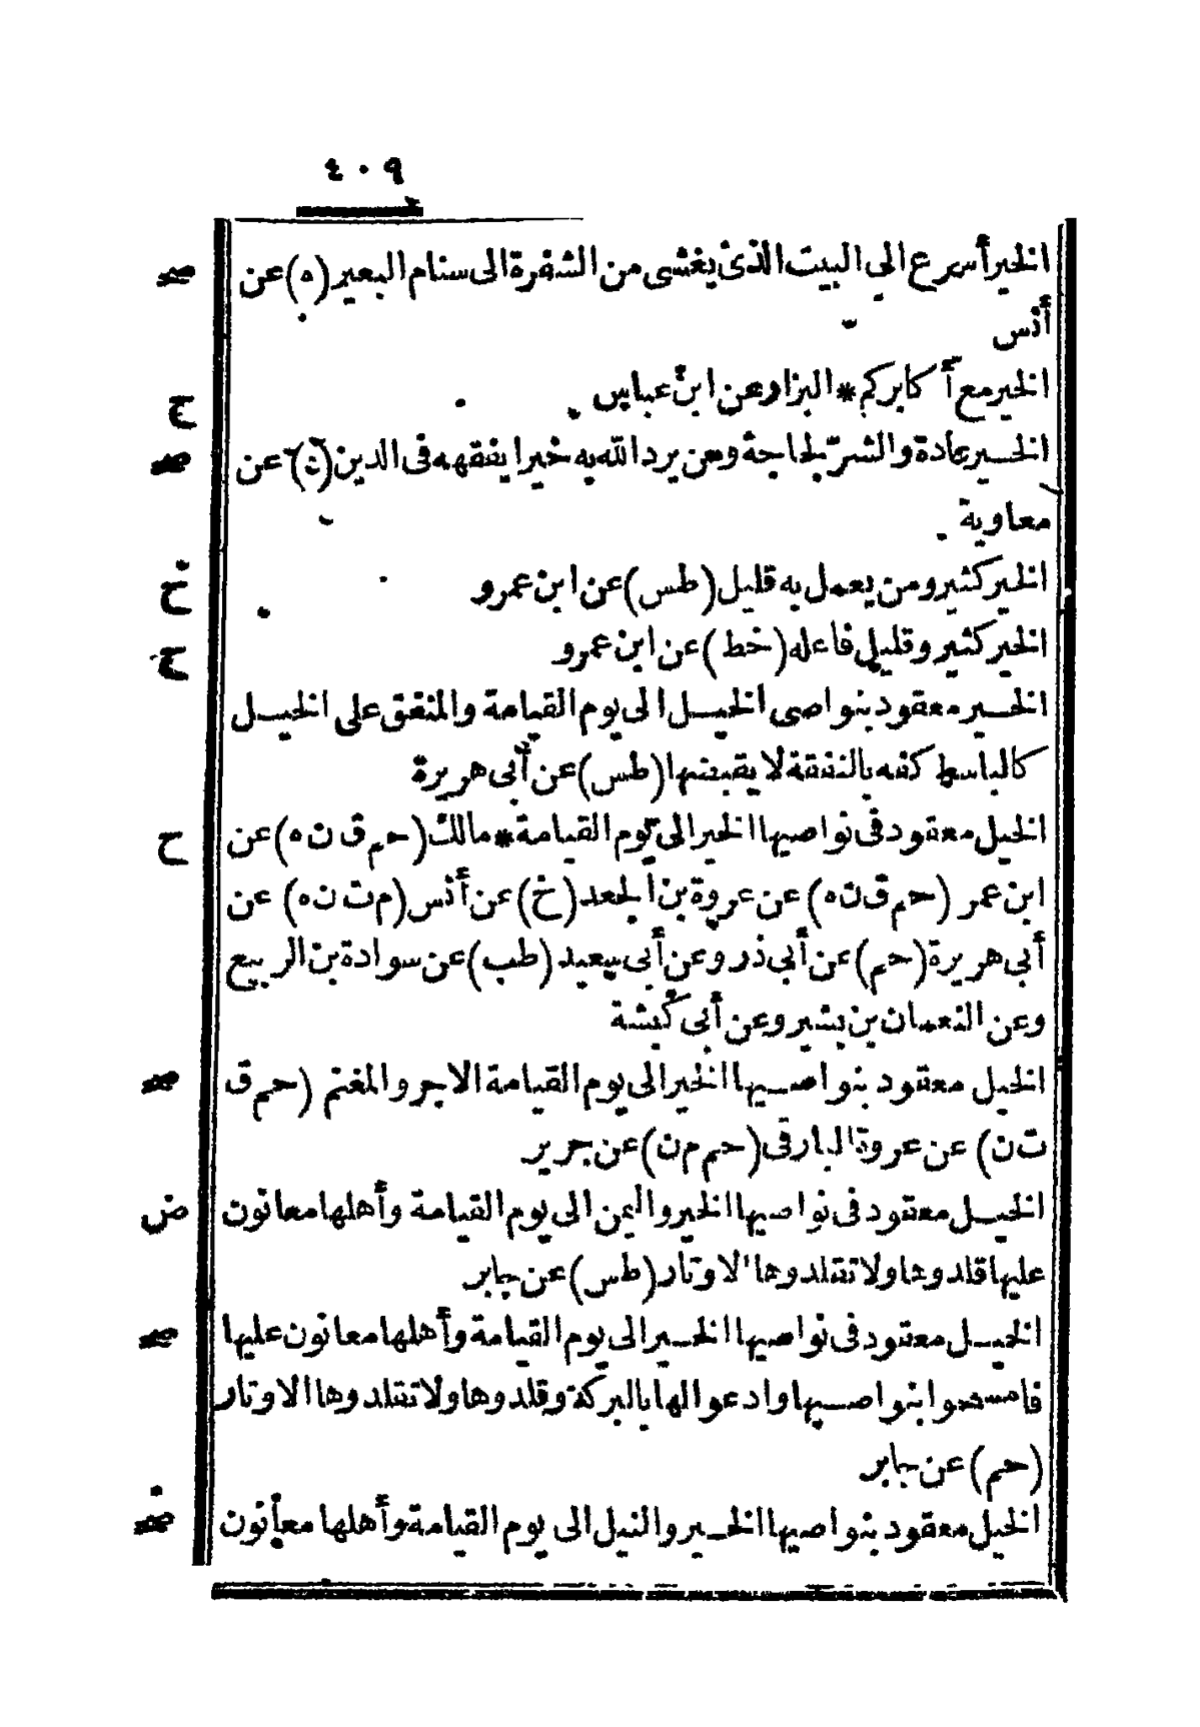 ٤٠٩
الخير أسرع الى البيت الذى يغشى من الشفرة الى سنام البعير (ه) عن صحـ
أنس
الخير مع أكابركم * البزار عن ابن عباس ح
الخـير عادة والشر لجاجة ومن يرد الله به خيرا يفقهه فى الدين (ه) عن صحـ
معاوية
الخير كثير ومن يعمل به قليل (طس) عن ابن عمرو ح
الخير كثير وقليل فاعله (خط) عن ابن عمرو ح
الخـير معقود بنواصى الخيـل الى يوم القيامة والمنفق على الخيـل
كالباسط كفه بالنفقة لا يقبضها (طس) عن أبى هريرة
الخيل معقود فى نواصيها الخير الى يوم القيامة * مالك (حم ق ن ه) عن ح
ابن عمر (حم ق ن ه) عن عروة بن الجعد (خ) عن أنس (م ت ن ه) عن
أبى هريرة (حم) عن أبى ذر وعن أبى سعيد (طب) عن سوادة بن الربيع
وعن النعمان بن بشير وعن أبى كبشة
الخيل معقود بنواصـيها الخير الى يوم القيامة الاجر والمغنم (حم ق صحـ
ت ن) عن عروة البارقى (حم م ن) عن جرير
الخيـل معقود فى نواصيها الخير واليمن الى يوم القيامة وأهلها معانون ض
عليها قلدوها ولا تقلدوها الاوتار (طس) عن جابر
الخيـل معقود فى نواصيها الخـير الى يوم القيامة وأهلها معانون عليها صحـ
فامسحوا بنواصـيها وادعوا لها بالبركة وقلدوها ولا تقلدوها الاوتار
(حم) عن جابر
الخيل معقود بنواصيها الخـير والنيل الى يوم القيامة وأهلها معانون